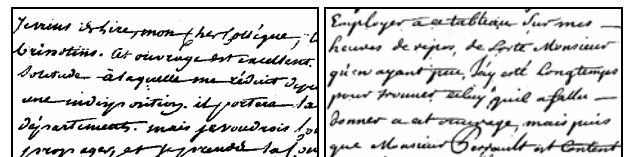 Je viens de lire, mon cher collègue,
Crinotins. Cet ouvrage est excellent.
solitude à laquelle me réduit depu
une indisposition. il portera la
départements. mais je voudrois
propager, et je prends la
Employer a ce tableau sur mes
heures de repos, de sorte Monsieur
qu'en ayant peu, J'ay esté Longtemps
pour trouver celuy qu'il a fallu
donner a cet ouvrage, mais puis
que Monsieur Perrault est Content